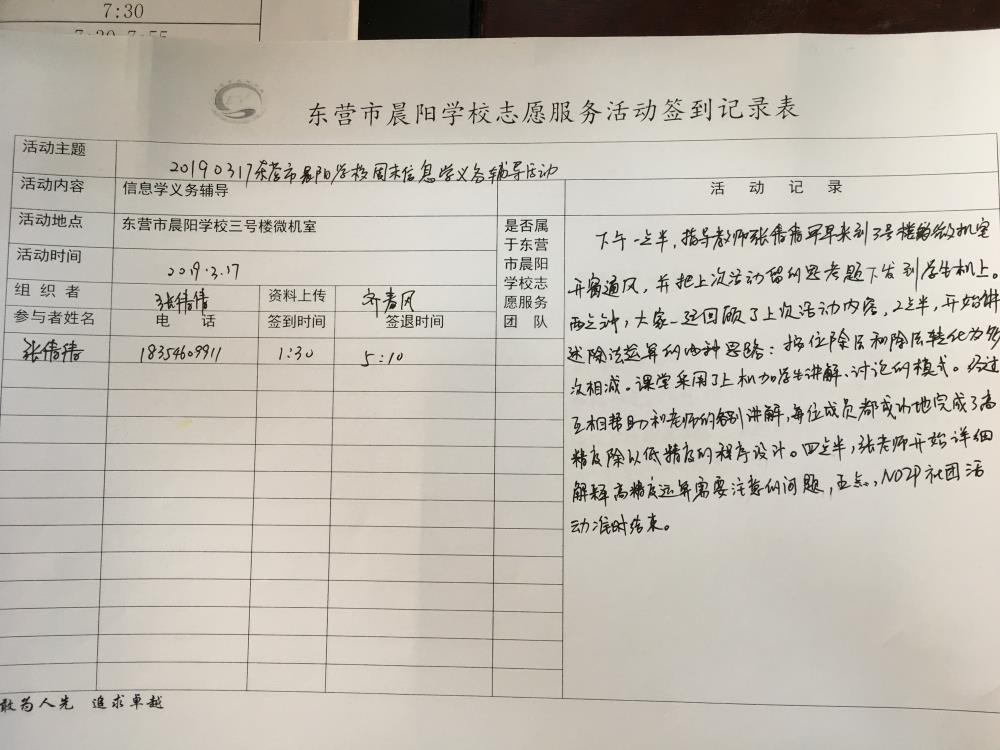 7:30
7:30-7:55
东营市晨阳学校志愿服务活动签到记录表
活动主题 20190317东营市晨阳学校周末信息学义务辅导活动
活动内容 信息学义务辅导
活动地点 东营市晨阳学校三号楼微机室
活动时间 2019.3.17
组织者 张倩倩 资料上传
参与者姓名 电话 签到时间 签退时间
张倩倩 18354609911 1:30 5:10
是否属
于东营
市晨阳
学校志
愿服务
团队
活动记录
下午一点半，指导教师张倩倩早早来到3号楼微机室
开窗通风，并把上次活动留的思考题下发到学生机上。
两点钟，大家一起回顾了上次活动内容，2点半，开始讲
述除法运算的两种思路：按位除法和除法转化为多
次相减。课堂采用了上机加学生讲解、讨论的模式。经过
互相帮助和老师的个别讲解，每位成员都成功地完成了高
精度除以低精度的程序设计。四点半，张老师开始详细
解释高精度运算需要注意的问题，五点，NOIP社团活
动准时结束。
敢为人先 追求卓越